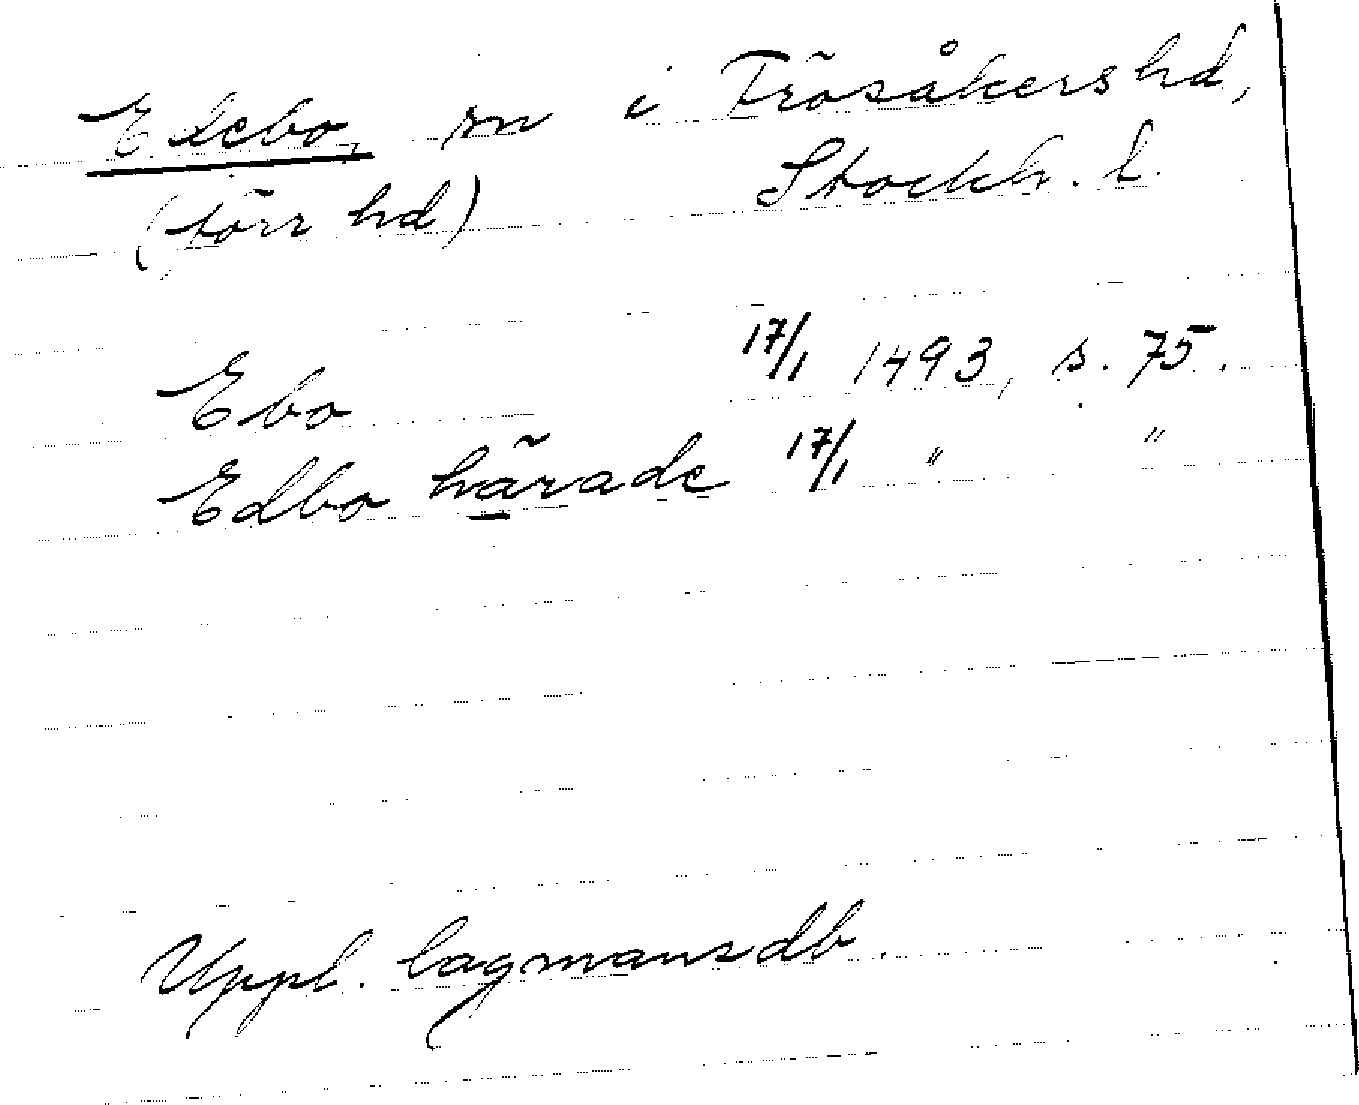 Edebo, sn i Frösåkers hd,
(förr hd) Stockh. l.
Ebo 17/1 1493, s. 75.
Edbo härade 17/1 " "
Uppl. lagmansdb.